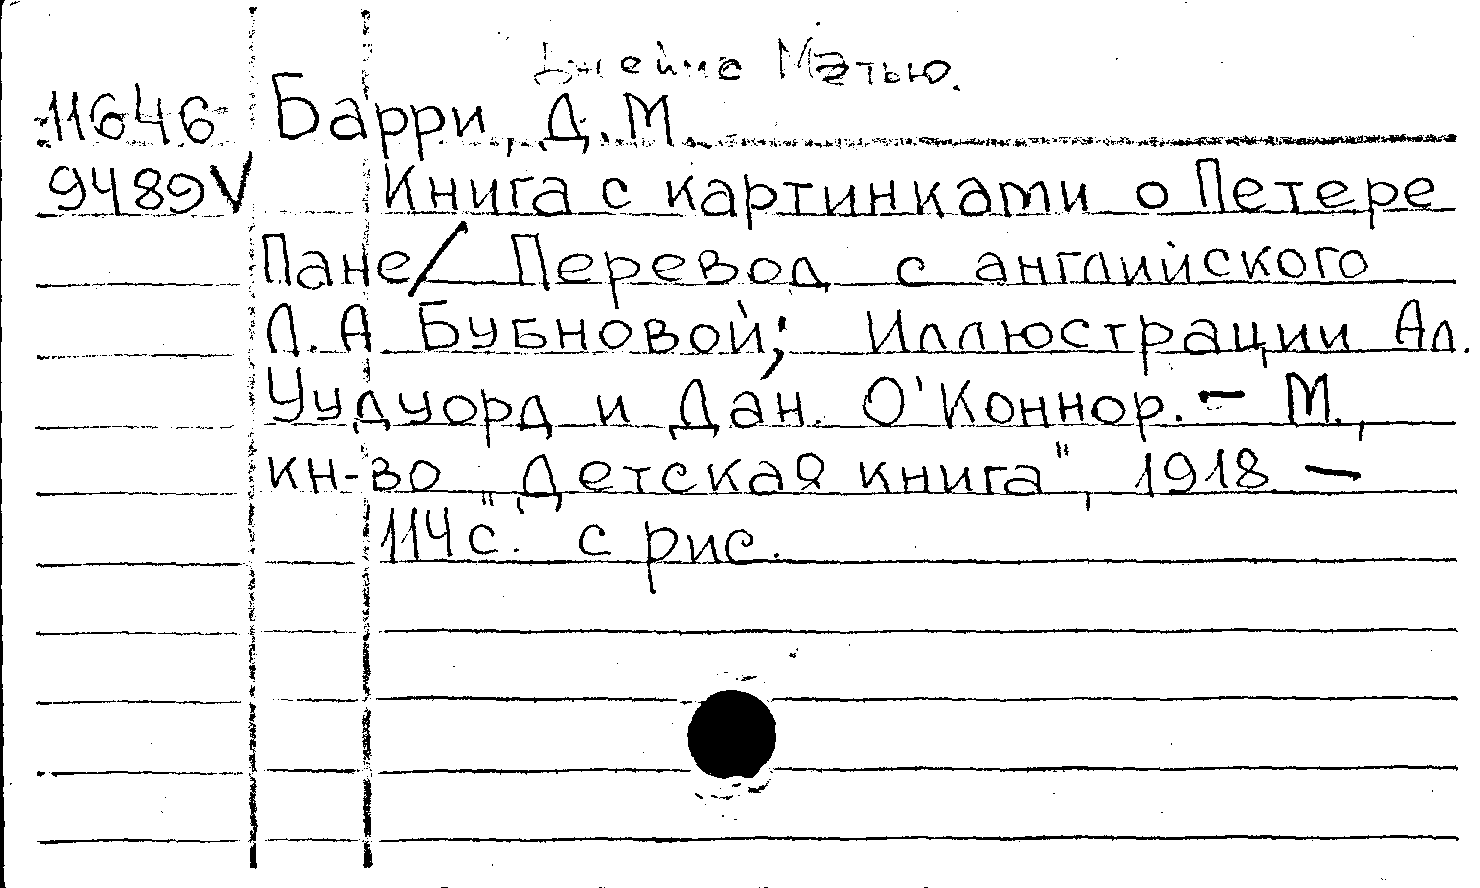 Джеймс Мэтью.
11646 Барри, Д. М.
9489V Книга с картинками о Петере
Пане/ Перевод с английского
Л. А Бубновой; Иллюстрации Ал.
Уудуорд и Дан. О'Коннор. - М.,
кн-во "Детская книга", 1918 —
114с. с рис.